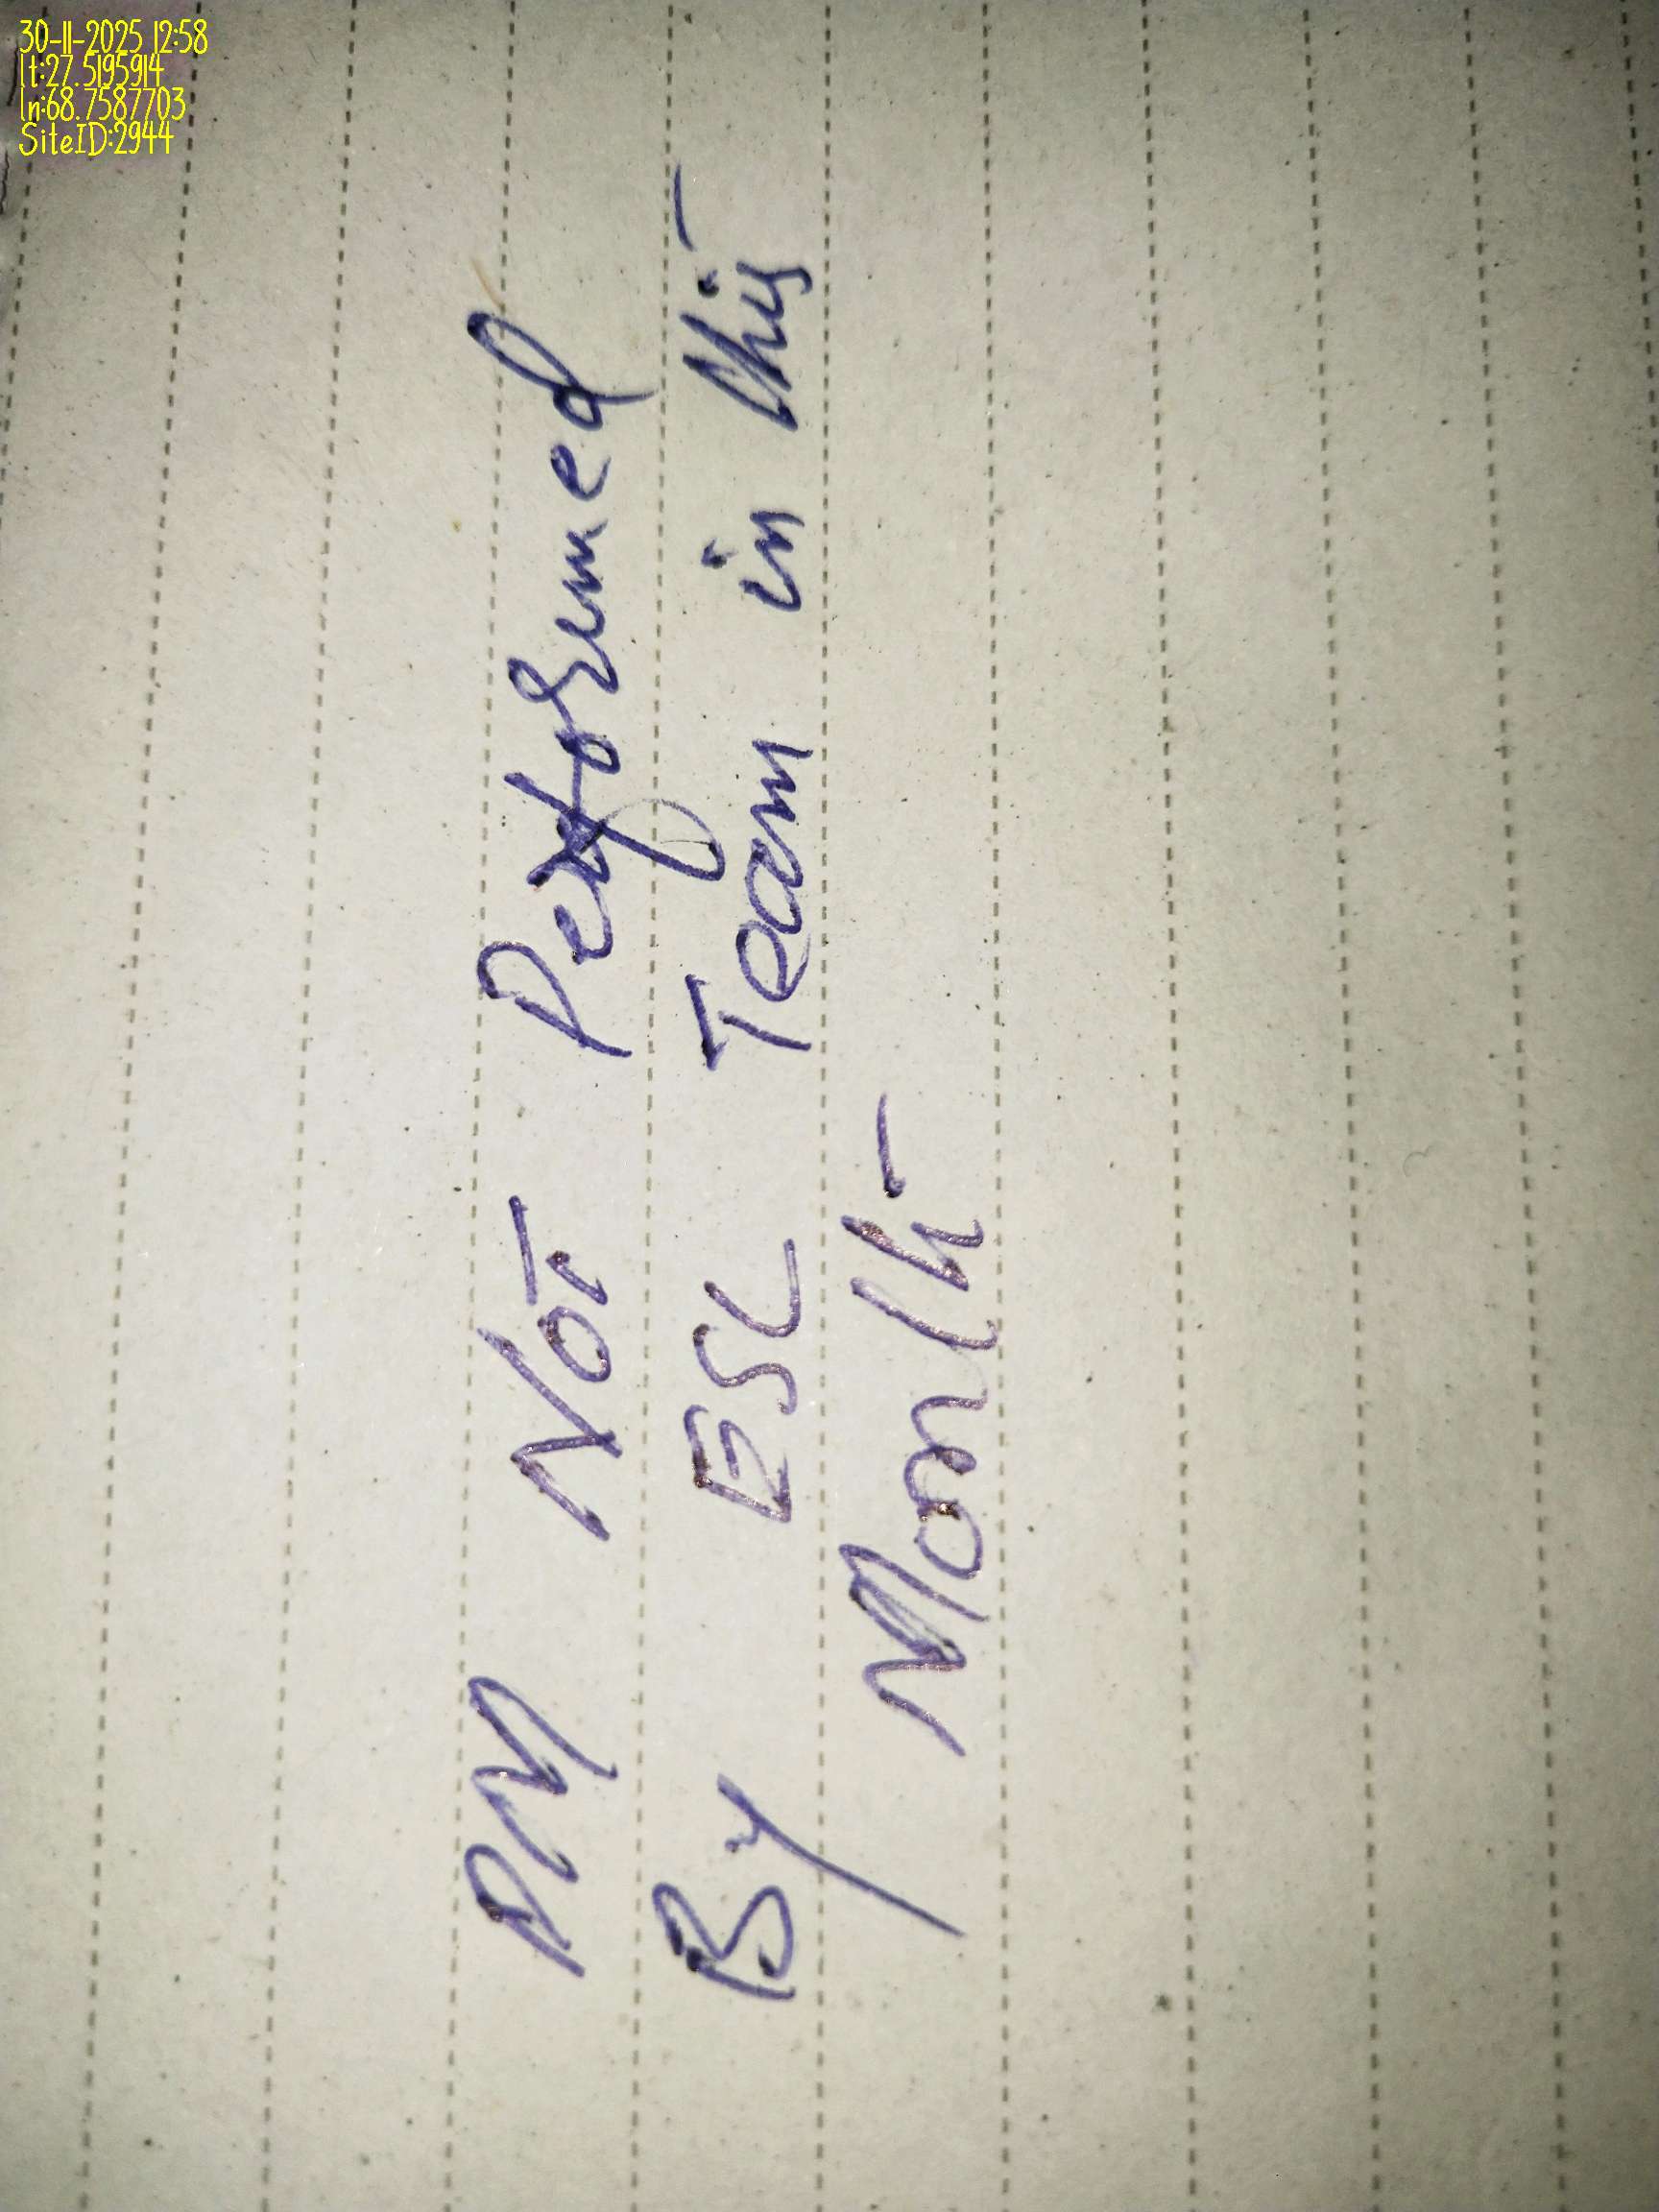 30-11-2025 12:58
lt:27.5195914
ln:68.7587703
SiteID:2944
PM Not Performed
By ESL Team in this
Month